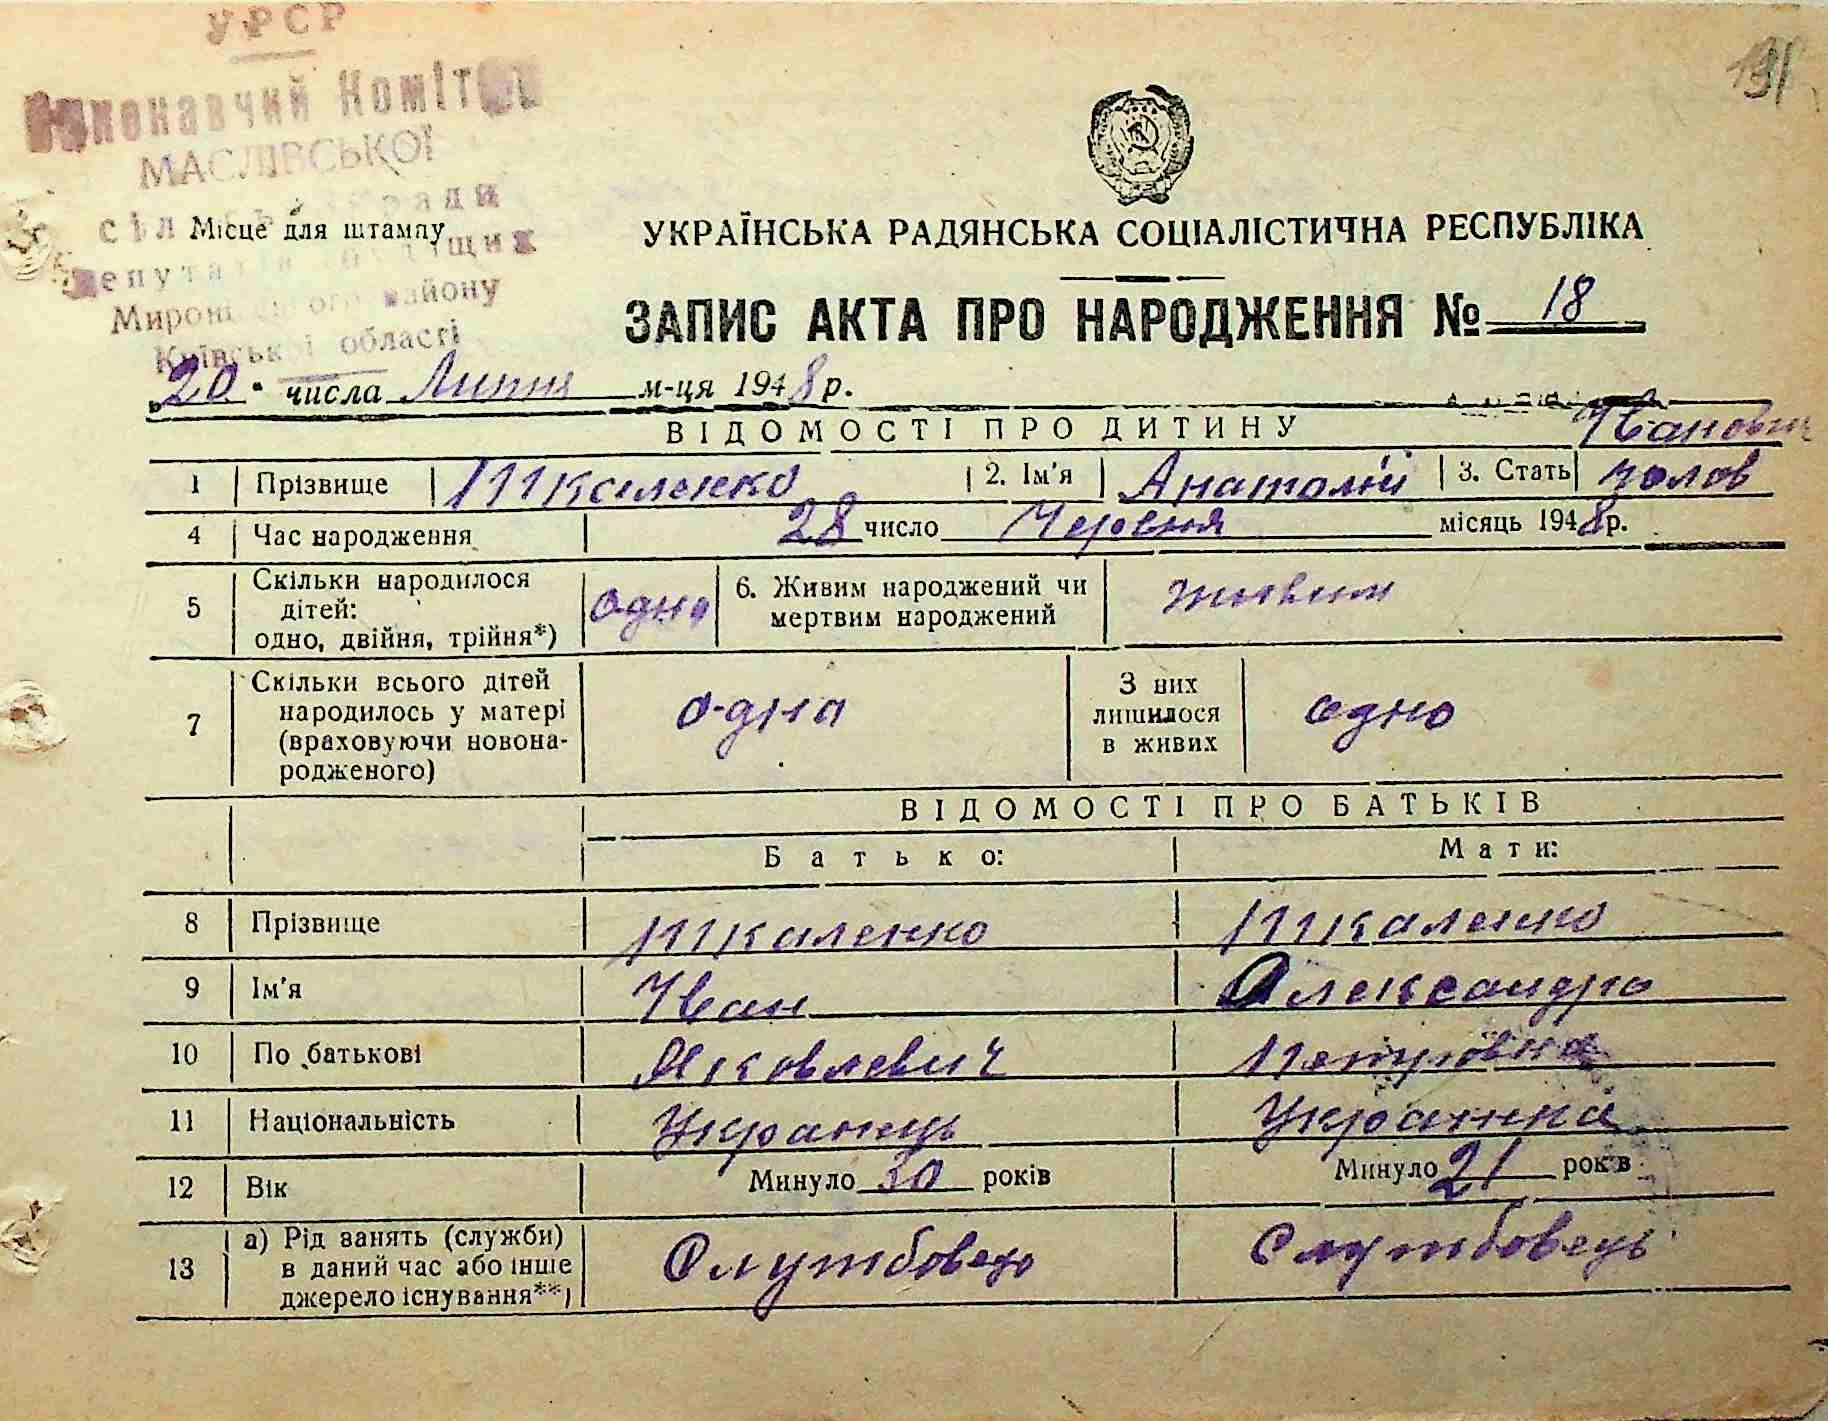 УРСР
Виконавчий Комітет
МАСЛІВСЬКОЇ
сільської ради
депутатів трудящих
Миронівського району
Київської області
191
Місце для штампу
УКРАЇНСЬКА РАДЯНСЬКА СОЦІАЛІСТИЧНА РЕСПУБЛІКА
ЗАПИС АКТА ПРО НАРОДЖЕННЯ № 18
20 числа Липня м-ця 1948 р.
ВІДОМОСТІ ПРО ДИТИНУ
Іванович
1 Прізвище Шкаленко 2. Ім'я Анатолій 3. Стать чолов
4 Час народження 28 число Червня місяць 1948 р.
5 Скільки народилося дітей: одно, двійня, трійня*) одно 6. Живим народжений чи мертвим народжений живим
7 Скільки всього дітей народилось у матері (враховуючи новонародженого) одна З них лишилося в живих одно
ВІДОМОСТІ ПРО БАТЬКІВ
Батько: Мати:
8 Прізвище Шкаленко Шкаленко
9 Ім'я Іван Александра
10 По батькові Яковлевич Петрівна
11 Національність Українець Українка
12 Вік Минуло 30 років Минуло 21 років
13 а) Рід занять (служби) в даний час або інше джерело існування**) Службовець Службовець